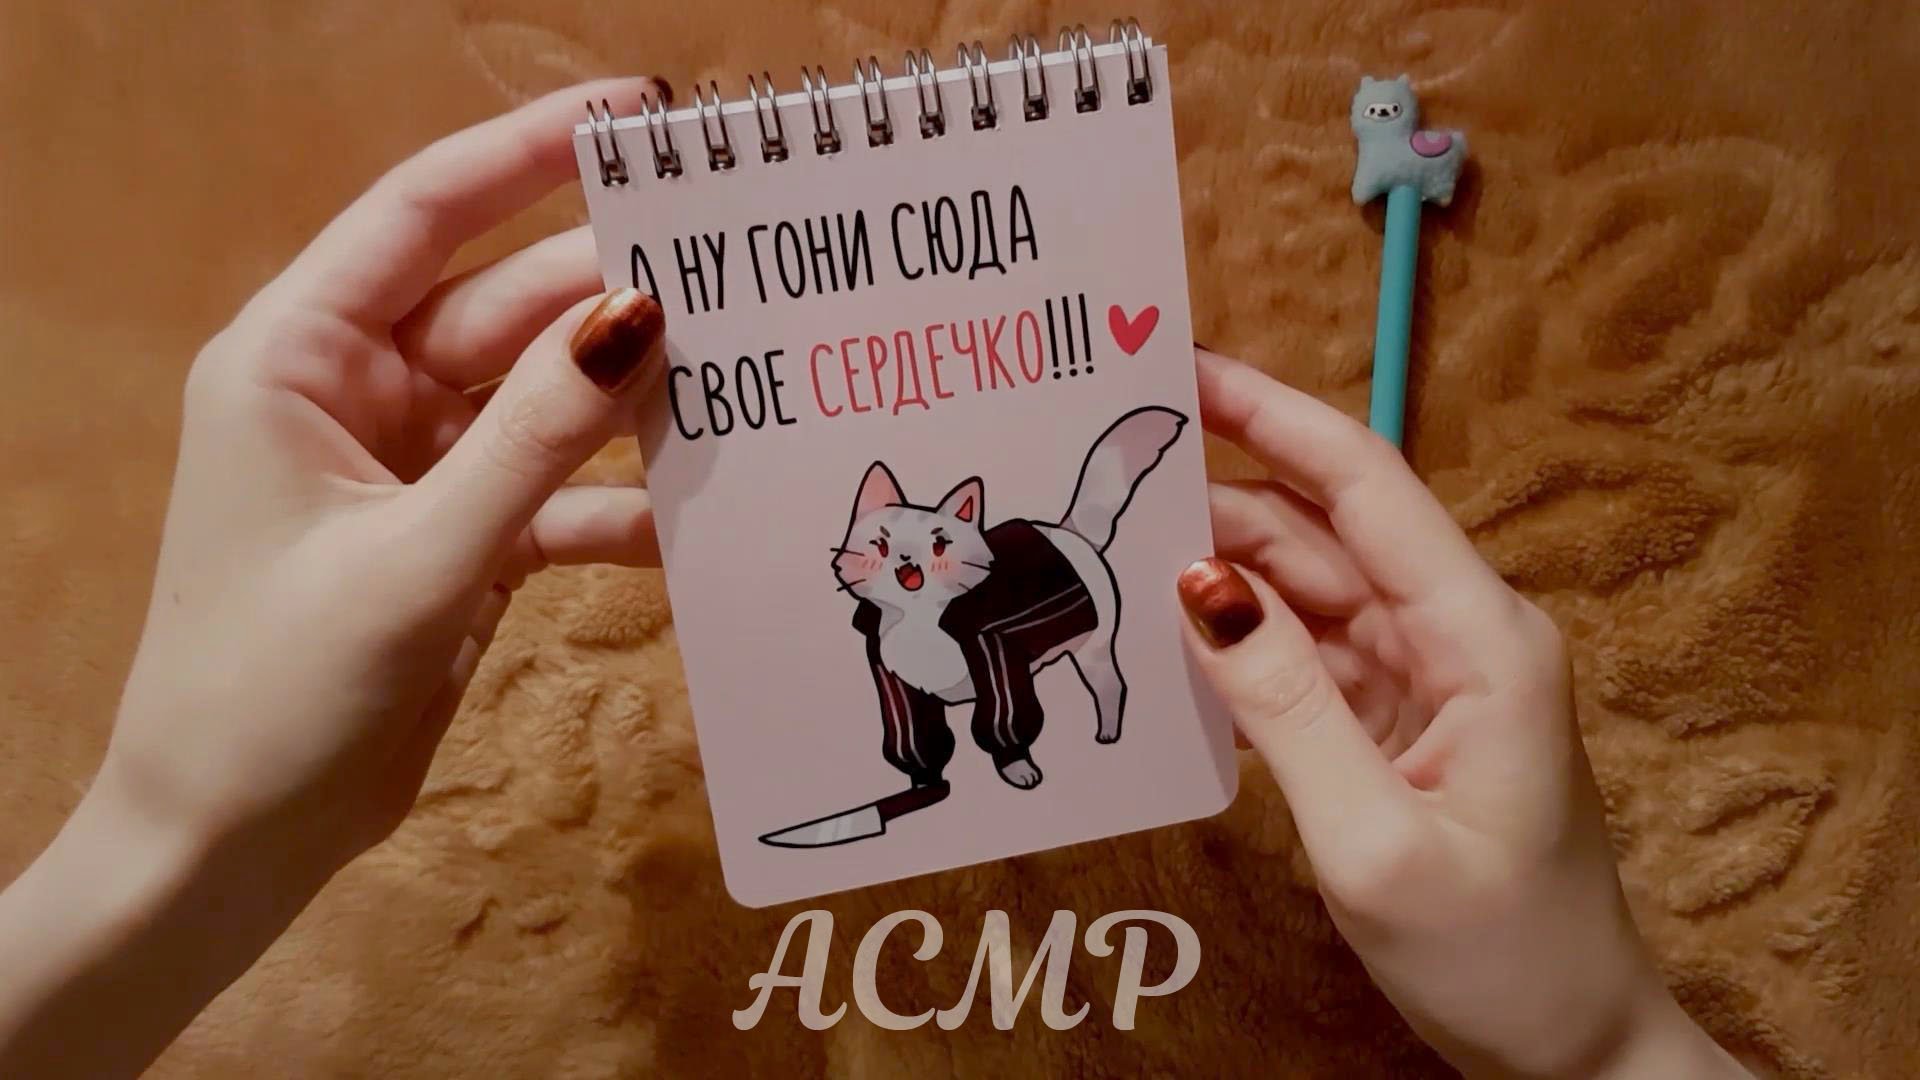 А НУ ГОНИ СЮДА
СВОЕ СЕРДЕЧКО!!!
АСМР